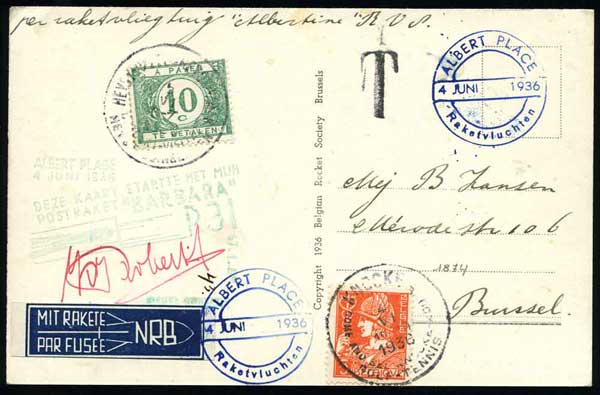 per raketvliegtuig "Albertine" R.V.8.
T
À PAYER
10
C
TE BETALEN
ALBERT PLACE
4 JUNI 1936
Raketvluchten
ALBERT PLAGE
4 JUNI 1936
DEZE KAART STARTTE MET MIJN
POSTRAKET "BARBARA"
Copyright 1936 Belgian Rocket Society Brussels
Mej B Hansen
Mérodestr 106
1874
Brussel.
MIT RAKETE
PAR FUSÉE
NRB
ALBERT PLACE
4 JUNI 1936
Raketvluchten
KNOCKE
1936
TENNIS